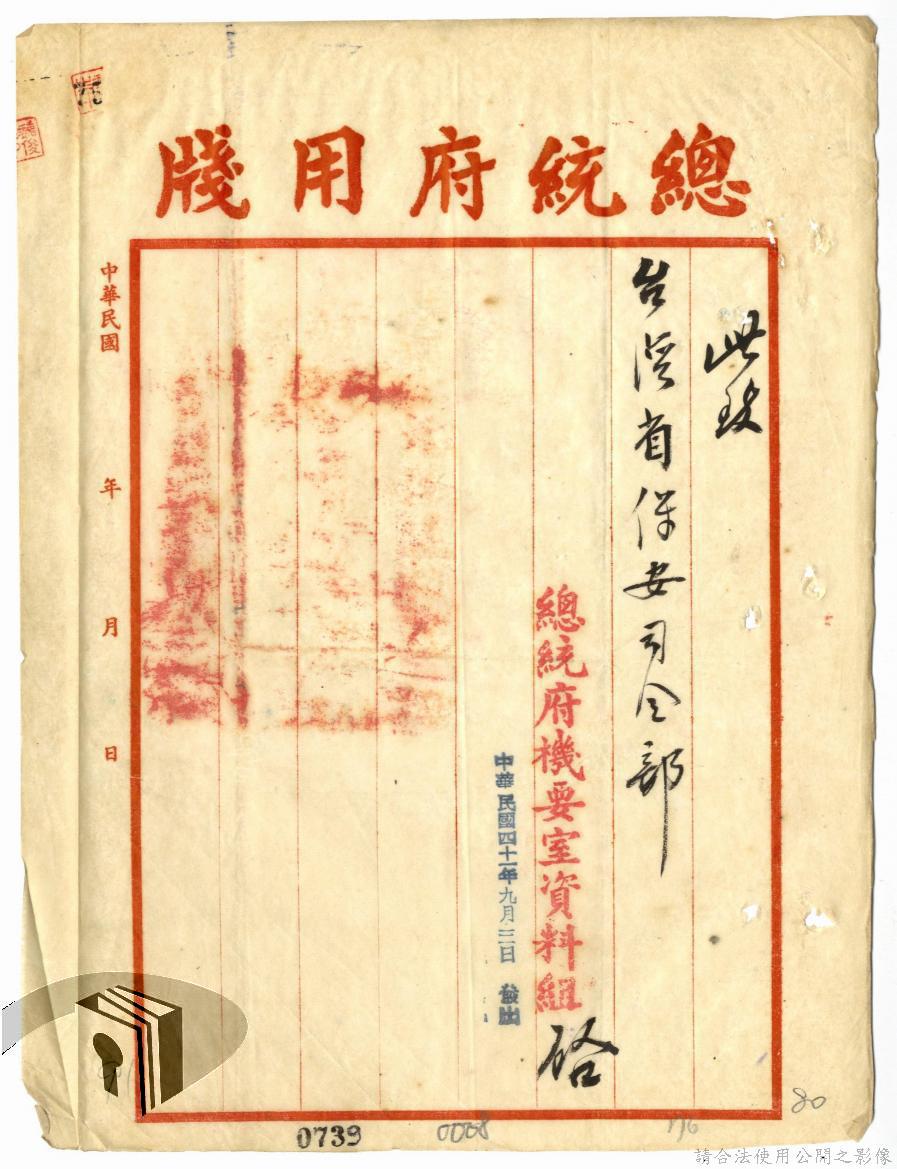 總統府用牋
此致
台灣省保安司令部
總統府機要室資料組 啓
中華民國四十一年九月二日 發出
中華民國 年 月 日
0739
0008
176
80
請合法使用公開之影像